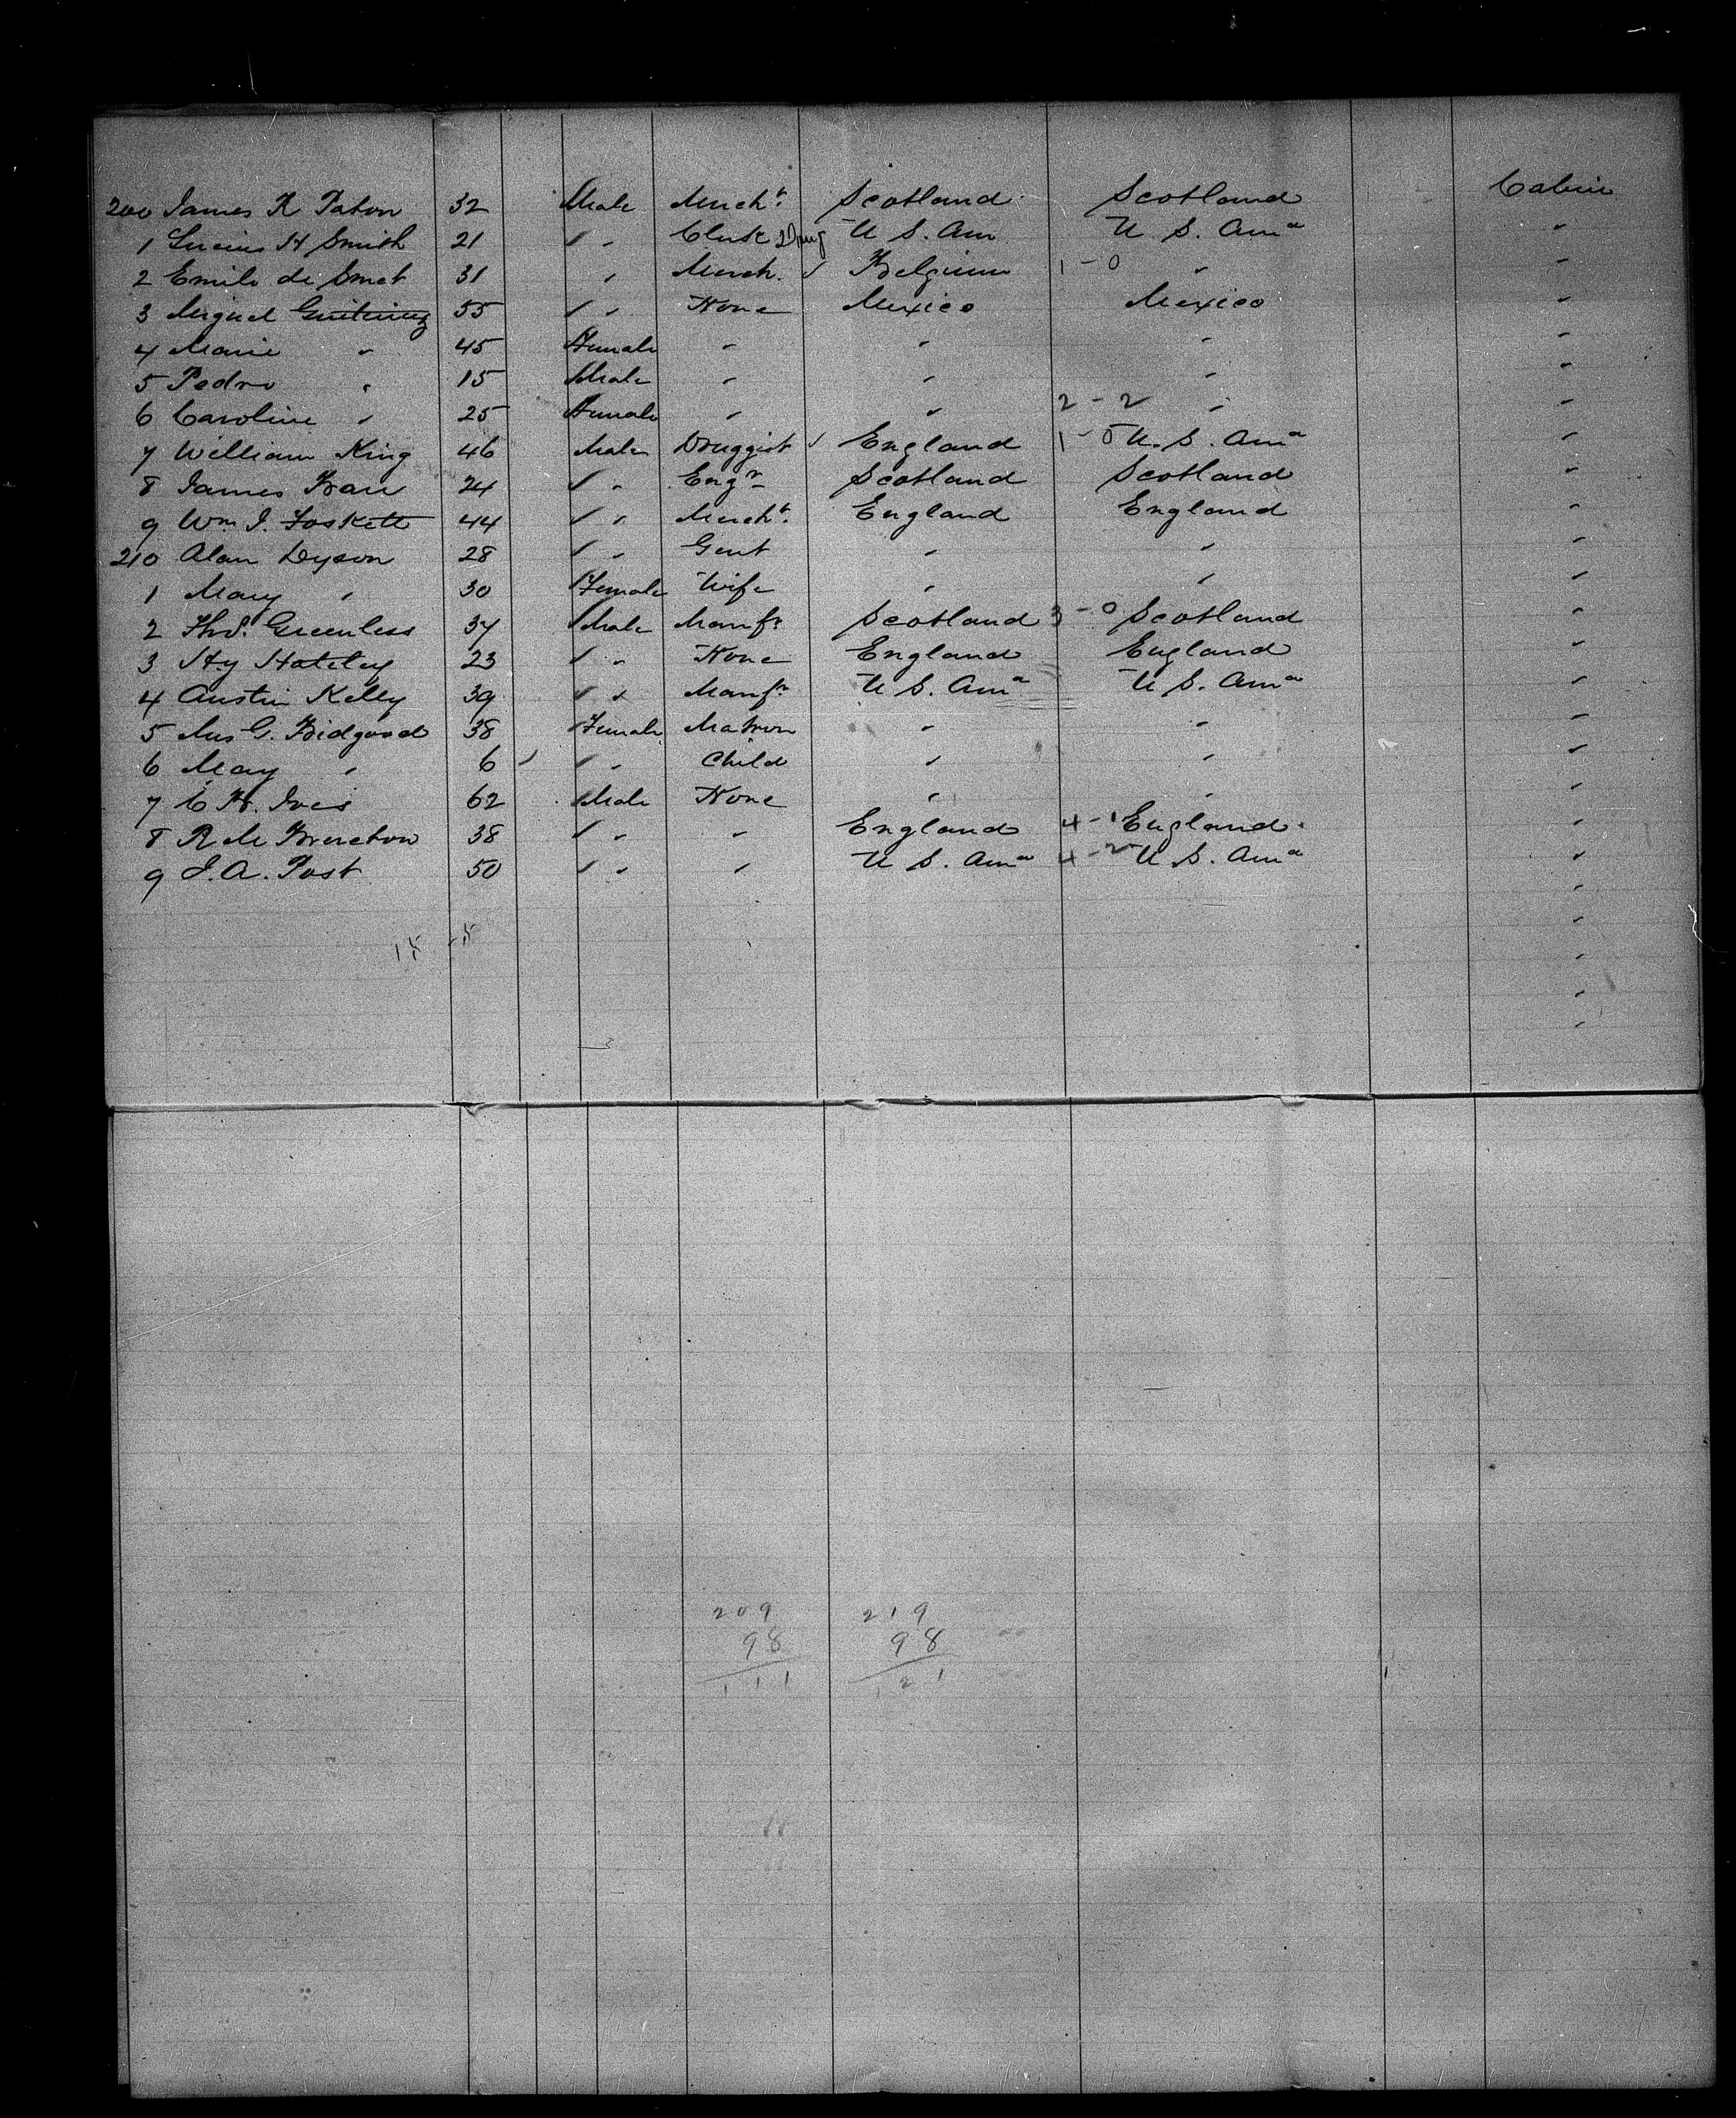 200 James R Paton 32 Male Mercht. Scotland Scotland Cabin
1 Lucius H Smith 21 " Clerk U S. Am U S. Ama "
2 Emile de Smet 31 " Merch. Belgium 1-0 " "
3 Miguel 55 " None Mexico Mexico "
4 Marie " 45 Female " " " "
5 Pedro " 15 Male " " " "
6 Caroline " 25 Female " " 2-2 " "
7 William King 46 Male Druggist England U. S. Ama "
8 James 24 " Engr Scotland Scotland "
9 Wm J. Foskett 44 " Mercht. England England "
210 Alan Dyson 28 " Gent " " "
1 Mary " 30 Female Wife " " "
2 Thos. Greenless 34 Male Manfr Scotland 3-0 Scotland "
3 Hy Hateley 23 " None England England "
4 Austin Kelly 39 " Manfr U S. Ama U S. Ama "
5 Mrs G. Bidgood 38 Female Matron " " "
6 May " 6 " Child " " "
7 C H. Ives 62 Male None " " "
8 R M Brereton 38 " " England 4-1 England "
9 J. A. Post 50 " " U S. Ama 4-2 U S. Ama "
"
"
15 -5
"
"
"
209 219
98 98
111 121